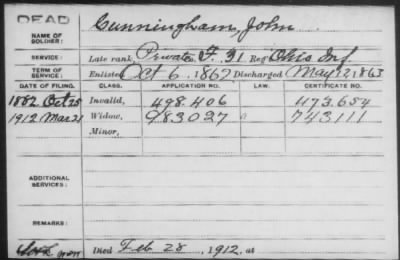 DEAD
NAME OF SOLDIER: Cunningham, John
SERVICE: Late rank, Private F. 31 Reg't Ohio Inf
TERM OF SERVICE: Enlisted Oct 6, 1862 Discharged May 22, 1863
DATE OF FILING. CLASS. APPLICATION NO. LAW. CERTIFICATE NO.
1882 Oct 25 Invalid, 498.406 473.654
1912 Mar 21 Widow, 983027 743111
Minor,
ADDITIONAL SERVICES:
REMARKS:
Died Feb 28, 1912, at